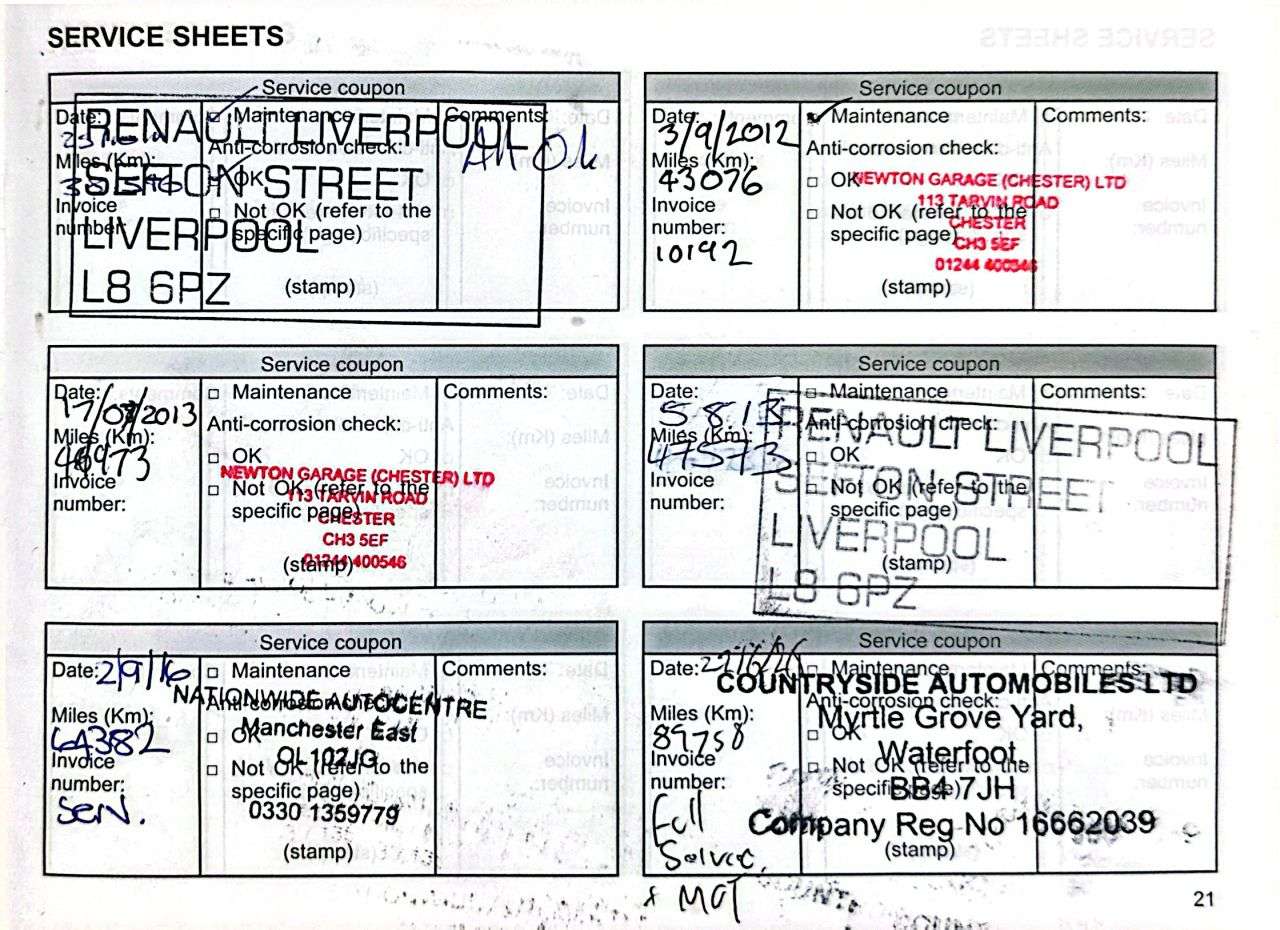 SERVICE SHEETS
Service coupon
Date:
Miles (Km):
Invoice
number:
Maintenance
Anti-corrosion check:
OK
Not OK (refer to the
specific page)
(stamp)
Comments:
All Ok
RENAULT LIVERPOOL
SEFTON STREET
LIVERPOOL
L8 6PZ
Service coupon
Date:
3/9/2012
Miles (Km):
43076
Invoice
number:
10192
Maintenance
Anti-corrosion check:
OK
Not OK (refer to the
specific page)
(stamp)
Comments:
NEWTON GARAGE (CHESTER) LTD
113 TARVIN ROAD
CHESTER
CH3 5EF
01244 400546
Service coupon
Date:
17/07/2013
Miles (Km):
46973
Invoice
number:
Maintenance
Anti-corrosion check:
OK
Not OK (refer to the
specific page)
(stamp)
Comments:
NEWTON GARAGE (CHESTER) LTD
113 TARVIN ROAD
CHESTER
CH3 5EF
01244 400546
Service coupon
Date:
5.8.13
Miles (Km):
47573
Invoice
number:
Maintenance
Anti-corrosion check:
OK
Not OK (refer to the
specific page)
(stamp)
Comments:
RENAULT LIVERPOOL
SEFTON STREET
LIVERPOOL
L8 6PZ
Service coupon
Date: 2/9/16
Miles (Km):
64382
Invoice
number:
Serv.
Maintenance
Anti-corrosion check:
OK
Not OK (refer to the
specific page)
(stamp)
Comments:
NATIONWIDE AUTOCENTRE
Manchester East
OL102JG
0330 1359779
Service coupon
Date:
Miles (Km):
89758
Invoice
number:
Full
Service
+ MOT
Maintenance
Anti-corrosion check:
OK
Not OK (refer to the
specific page)
(stamp)
Comments:
COUNTRYSIDE AUTOMOBILES LTD
Myrtle Grove Yard,
Waterfoot
BB4 7JH
Company Reg No 16662039
21